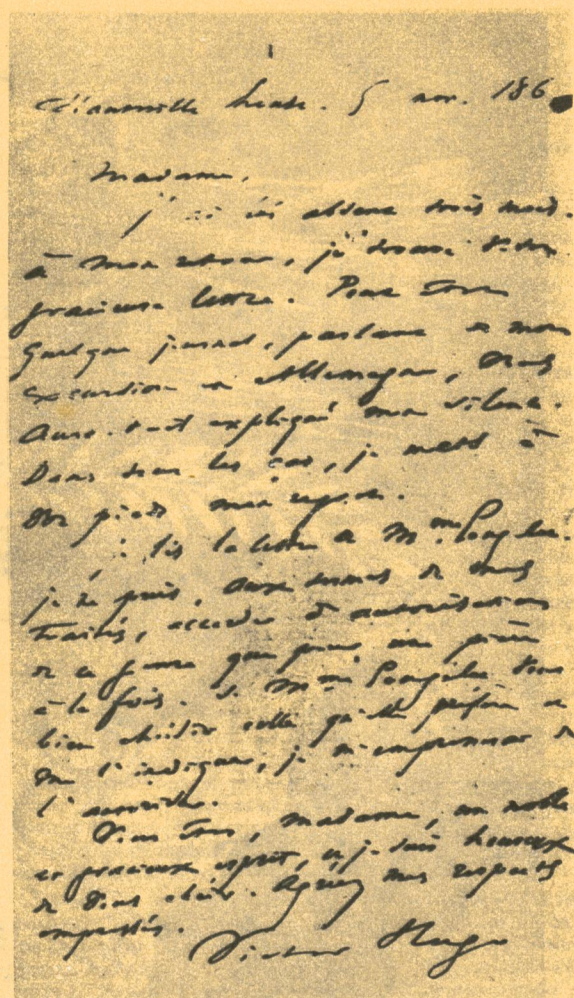 Hauteville house. 5 nov. 186
Madame,
j'ai été absent trois mois.
à mon retour, je trouve votre
gracieuse lettre. Peut être
quelque journal, parlant de mon
excursion en Allemagne, vous
aura-t-il expliqué mon silence.
Dans tous les cas, je mets à
vos pieds mes
je lis la lettre de Mme
je ne puis, aux termes de mes
traités, accorder d'autorisations
de ce genre que pour une pièce
à la fois. Si Mme veut
bien choisir celle qu'elle préfère et
me l'indiquer, je m'empresserai de
l'
Vous êtes, madame, un noble
et gracieux esprit, et je suis heureux
de vous obéir. Agréez mes respects
empressés.
Victor Hugo